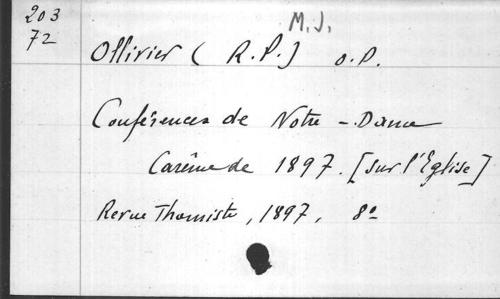 203
72
M.J.
Ollivier (R.P.) O.P.
Conférences de Notre-Dame
Carême de 1897. [sur l'Eglise]
Revue Thomiste, 1897, 8º